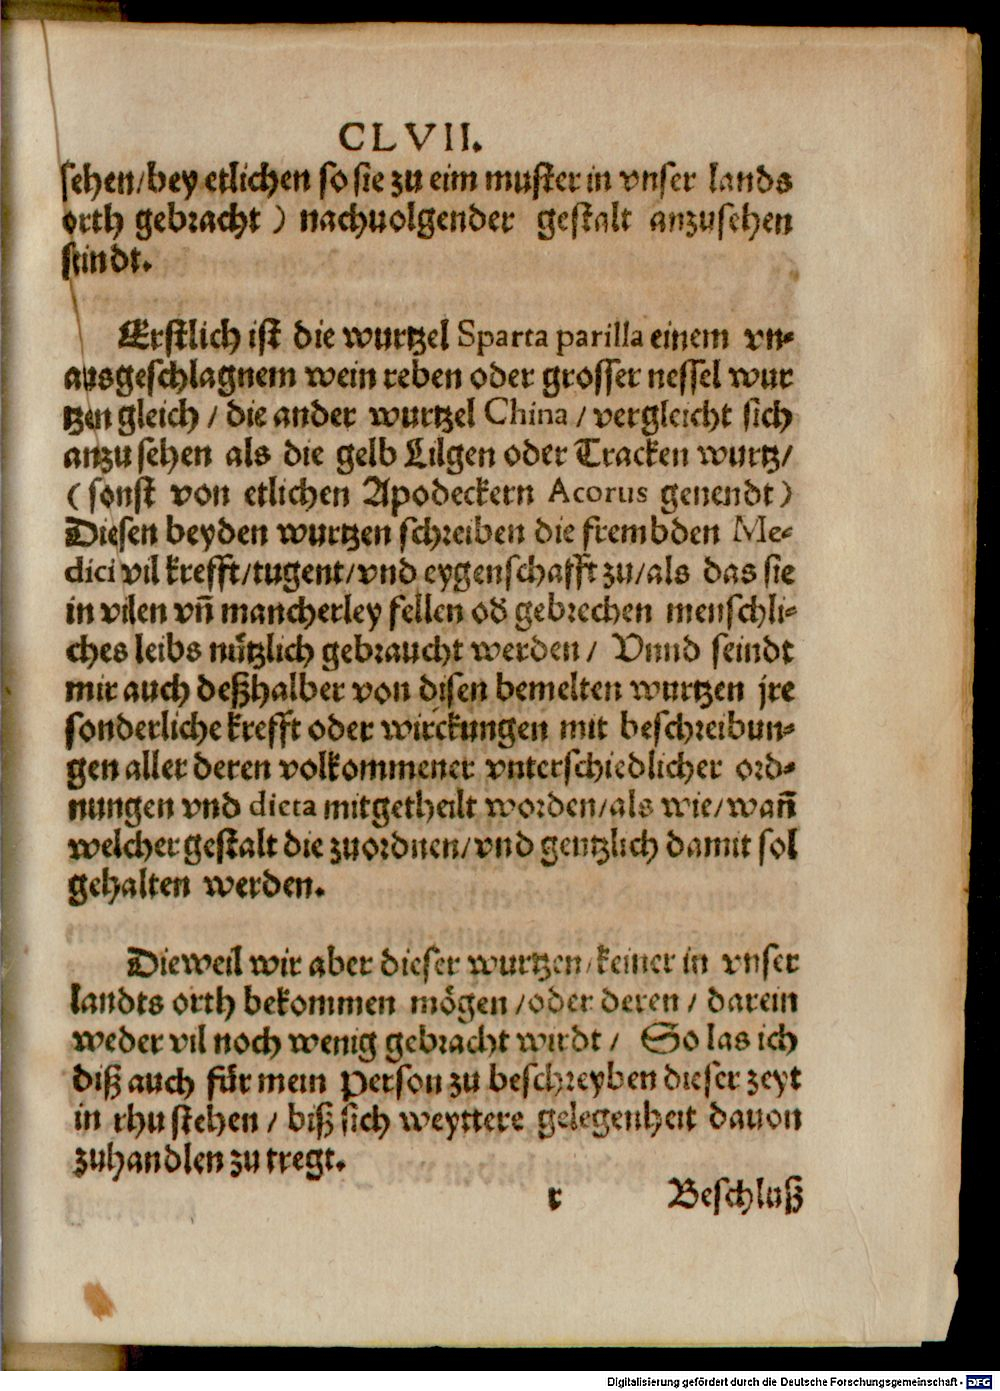 CLVII.
sehen/bey etlichen so sie zu eim muster in vnser lands
orth gebracht) nachuolgender gestalt anzusehen
seindt.
Erstlich ist die wurtzel Sparta parilla einem vn-
ausgeschlagnem wein reben oder grosser nessel wur
tzen gleich / die ander wurtzel China / vergleicht sich
anzusehen als die gelb Lilgen oder Tracken wurtz/
(sonst von etlichen Apodeckern Acorus genendt)
Diesen beyden wurtzen schreiben die frembden Me-
dici vil krefft/tugent/vnd eygenschafft zu/als das sie
in vilen vñ mancherley fellen od gebrechen menschli-
ches leibs nützlich gebraucht werden / Vnnd seindt
mir auch deßhalber von disen bemelten wurtzen jre
sonderliche krefft oder wirckungen mit beschreibun-
gen aller deren volkommener vnterschiedlicher ord-
nungen vnd dieta mitgetheilt worden/als wie/wañ
welcher gestalt die zuordnen/vnd gentzlich damit sol
gehalten werden.
Dieweil wir aber dieser wurtzen/keiner in vnser
landts orth bekommen mögen /oder deren / darein
weder vil noch wenig gebracht wirdt / So las ich
diß auch für mein Person zu beschreyben dieser zeyt
in rhu stehen / biß sich weyttere gelegenheit dauon
zuhandlen zu tregt.
r Beschluß
Digitalisierung gefördert durch die Deutsche Forschungsgemeinschaft - DFG